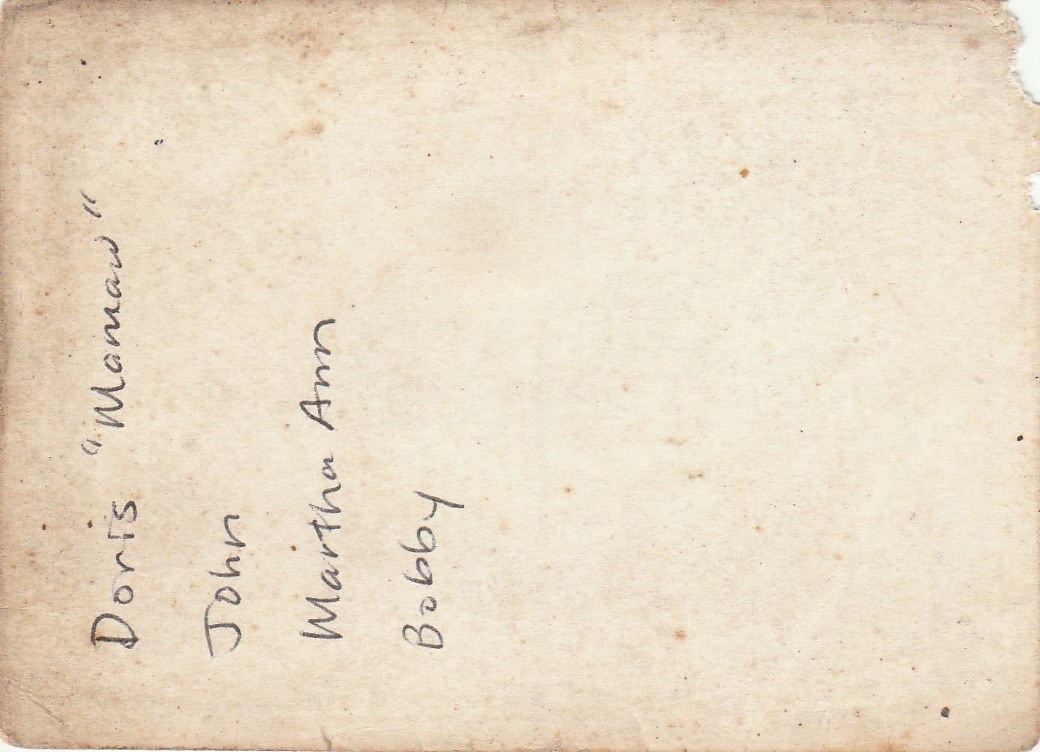 Doris "Mamaw"
John
Martha Ann
Bobby